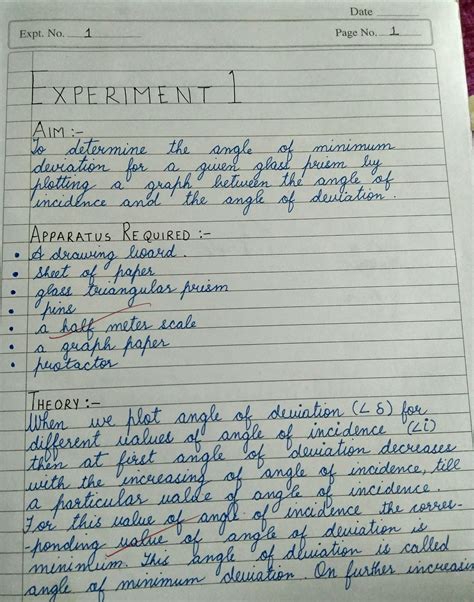 Date
Expt. No. 1 Page No. 1
EXPERIMENT 1
AIM :-
To determine the angle of minimum
deviation for a given glass prism by
plotting a graph between the angle of
incidence and the angle of deviation.
APPARATUS REQUIRED :-
• A drawing board.
• sheet of paper
• glass triangular prism
• pins
• a half meter scale
• a graph paper
• protactor
THEORY :-
When we plot angle of deviation (∠ δ) for
different values of angle of incidence (∠i)
then at first angle of deviation decreases
with the increasing of angle of incidence, till
a particular value of angle of incidence.
For this value of angle of incidence the corres-
-ponding value of angle of deviation is
minimum. This angle of deviation is called
angle of minimum deviation. On further increasin